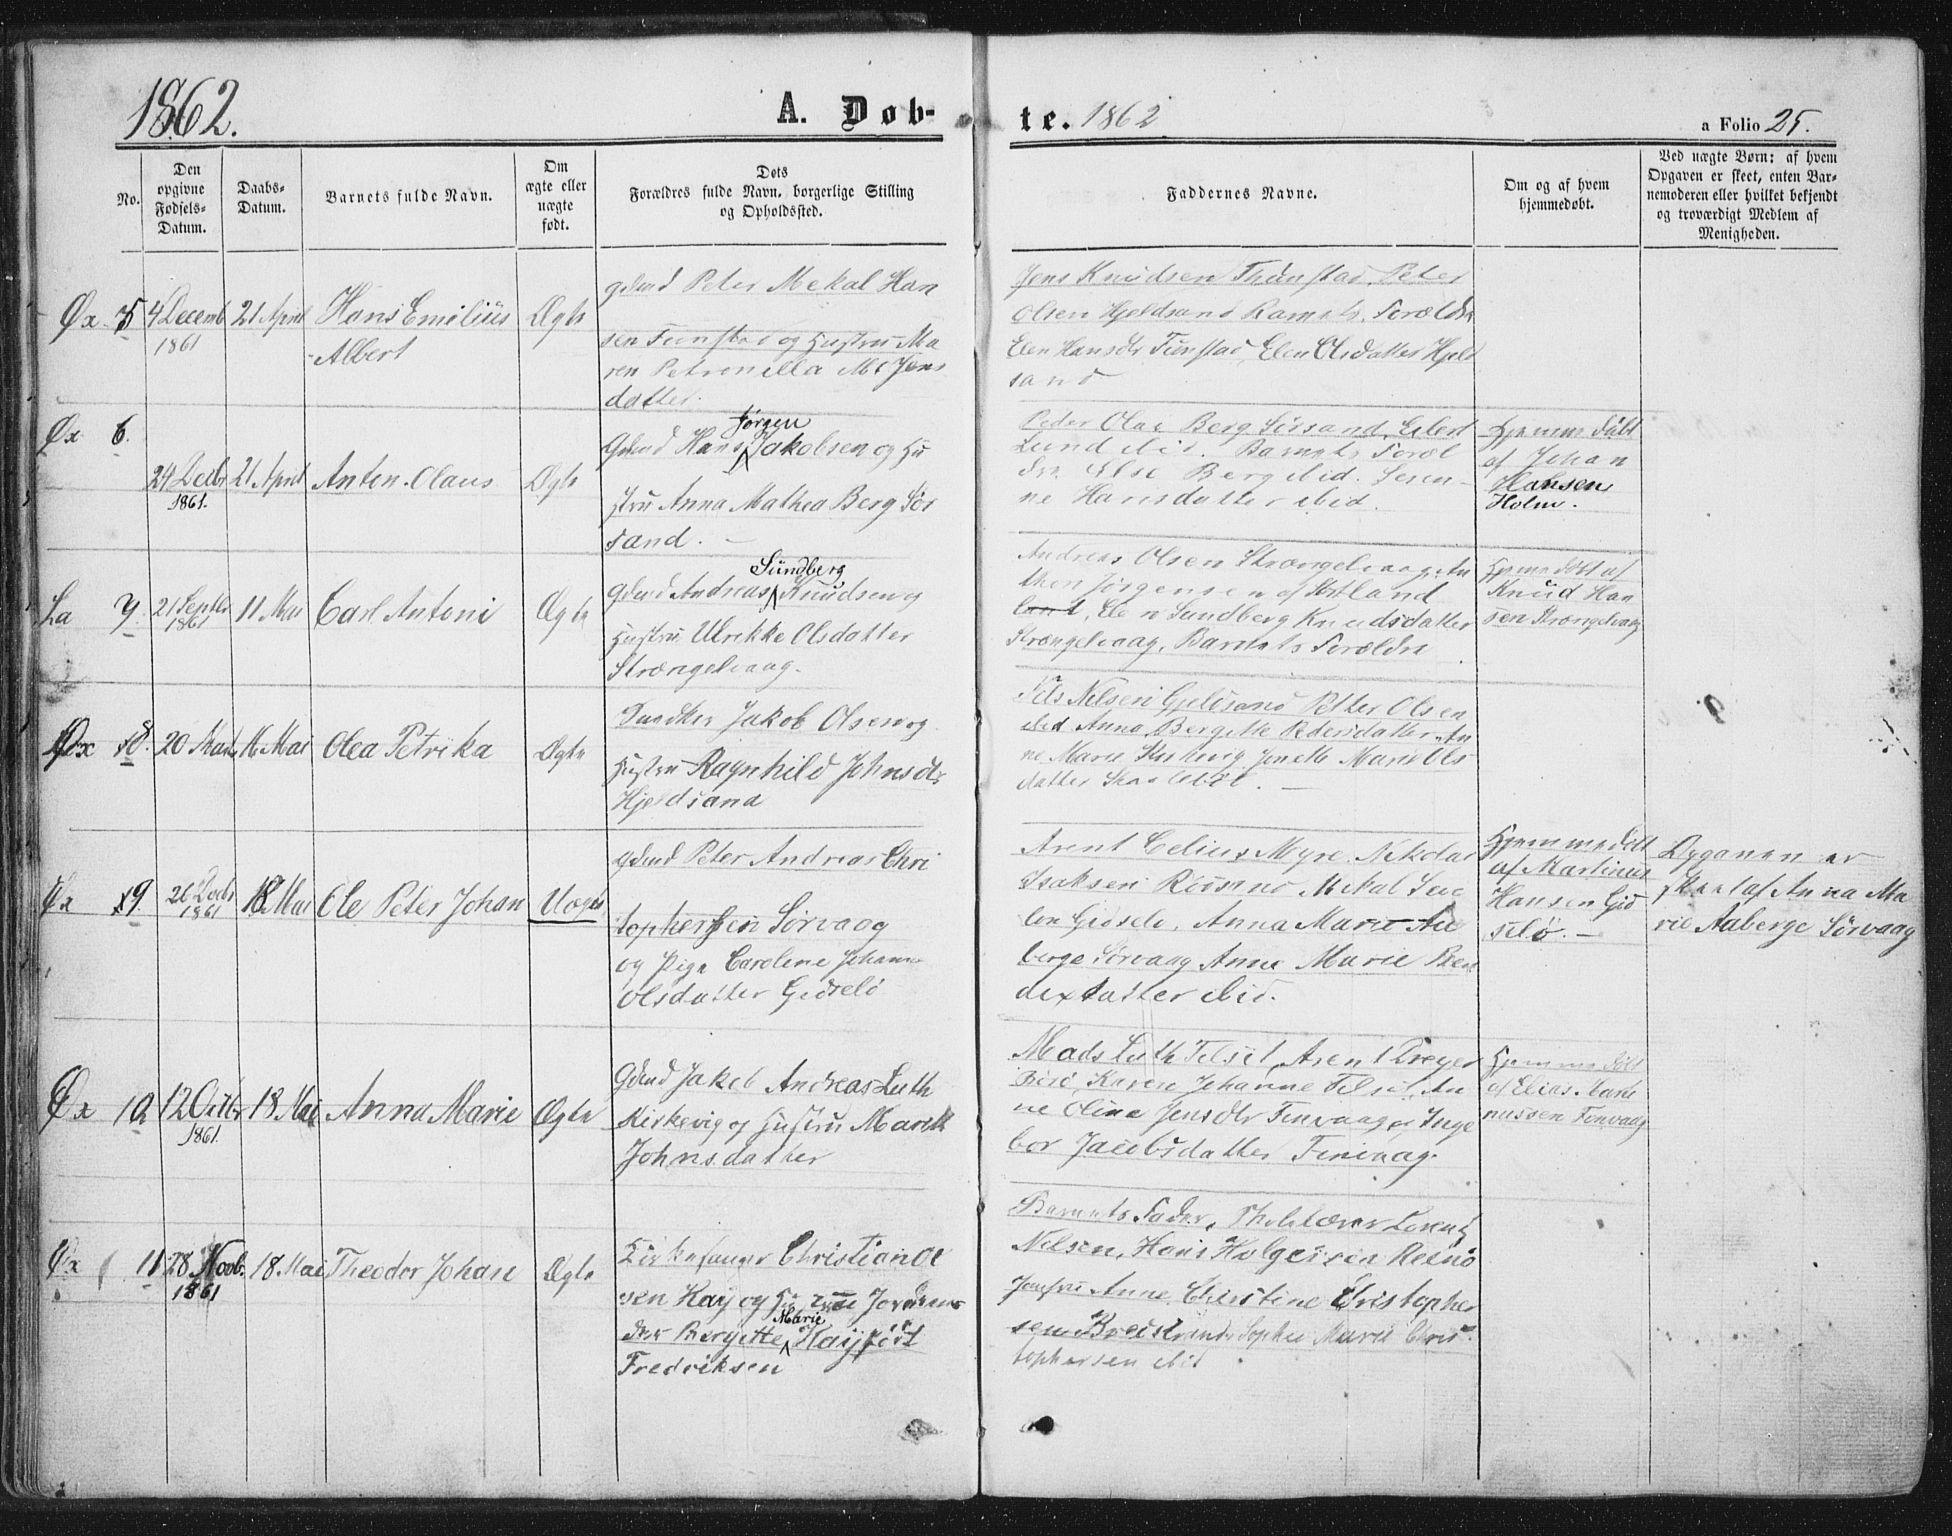 1862.
A. Døb-
te. 1862
a Folio 25.
No.
Den opgivne Fødsels-Datum.
Daabs-Datum.
Barnets fulde Navn.
Om ægte eller uægte født.
Dets
Forældres fulde Navn, borgerlige Stilling
og Opholdssted.
Faddernes Navne.
Om og af hvem
hjemmedøbt.
Ved uægte Børn: af hvem
Opgaven er skeet, enten Bar-
nemoderen eller hvilket bekjendt
og troværdigt Medlem af
Menigheden.
Øx 5 4 Decemb 1861 21 April
Hans Emilius
Albert
Ægte
Gdmd Peter Mekal Han
sen Tunstad og Hustru Ma
ren Petronilla M. Jens
datter.
Jens Knudsen Thunstad, Peter
Olsen Hjeldsand Barnets Forældre
Elen Hansdtr Tunstad, Elen Olsdatter Hjeld
sand
Øx 6.
24 Decbr 1861. 21 April
Anton Olaus
Ægte
Jørgen
Gdmd Hans Jakobsen og Hu
stru Anna Mathea Berg Sør
sand.
Peder Olai Berg Sørsand,
Lund ibid. Barnets Foræl
dre. Else Berg ibid.
ne Hansdatter ibid.
Hjemmedøbt
af Johan
Hansen
Holm.
La 7. 21 Septbr 1861 11 Mai
Carl Antoni
Ægte
Sundberg
Gdmd Andreas Knudsen og
Hustru Ulrikke Olsdatter
Strængelvaag.
Andreas Olsen Strængelvaag, An
thon Jørgensen af
Elen Sundberg Knudsdatter
Strængelvaag, Barnets Forældre
Hjemmedøbt af
Knud Han
sen Strængelvaag
Øx 8. 20 Marts 16 Mai
Olea Petrika
Ægte
Jakob Olsen og
Hustru Ragnhild Johnsdtr
Hjeldsand
Nils Nilsen Petter Olsen
ibid Anna Bergitte Pedersdatter, An
ne Marie Kirkevig Marie Ols
datter
Øx 9. 26 Decbr 1861 18 Mai
Ole Peter Johan
Uægte
Gdmd Peter Andreas Chri
stophersen Sørvaag
og Pige Caroline Johanna
Olsdatter Gidselø
Arent Celius Myre, Nikolai
Isaksen Mekal
Gidselø, Anna Marie Aa
berge Sørvaag Anne Marie Ben
dixdatter ibid.
Hjemmedøbt
af Martinus
Hansen Gid
selø.
Opgaven er
skeet af Anna Ma
rie Aaberge Sørvaag
Øx 10. 12 Octbr 1861. 18 Mai
Anna Marie
Ægte
Gdmd Jakob Andreas Luth
Kirkevig og Hustru Marith
Johnsdatter
Mads Luth Arent Dreyer
Karen Johanne An
ne Olina Jensdtr Finvaag og Inge
bor Jacobsdatter Finvaag.
Hjemmedøbt
af Elias Mari
nussen Finvaag
Øx 11 28 Novb. 1861 18 Mai
Theodor Johan
Ægte
Kirkesanger Christian Ol
sen Kaij og Hustru Jordemo
Marie
der Bergitte Kaij født
Fredriksen
Barnets Fader, Skolelærer Lorentz
Nilsen, Hans Holgersen
Jomfru Anne Christine Christopher
sen Breistrand, Sophie Marie Chris
tophersen ibid